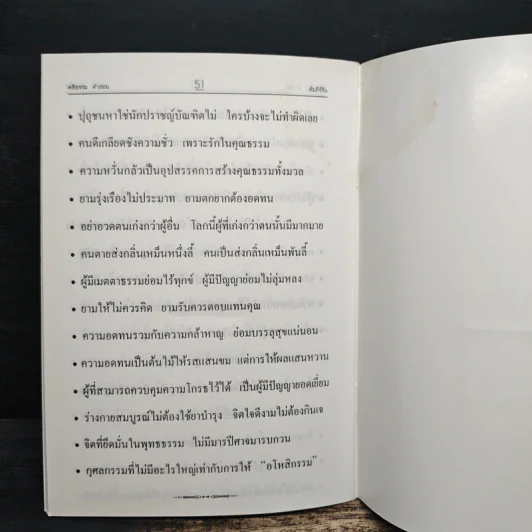 คติธรรม คำสอน 51
• ปุถุชนหาใช่นักปราชญ์บัณฑิตไม่ ใครบ้างจะไม่ทำผิดเลย
• คนดีเกลียดชังความชั่ว เพราะรักในคุณธรรม
• ความหวั่นกลัวเป็นอุปสรรคการสร้างคุณธรรมทั้งมวล
• ยามรุ่งเรืองไม่ประมาท ยามตกยากต้องอดทน
• อย่าอวดตนเก่งกว่าผู้อื่น โลกนี้ผู้ที่เก่งกว่าตนนั้นมีมากมาย
• คนตายส่งกลิ่นเหม็นหนึ่งลี้ คนเป็นส่งกลิ่นเหม็นพันลี้
• ผู้มีเมตตาธรรมย่อมไร้ทุกข์ ผู้มีปัญญาย่อมไม่ลุ่มหลง
• ยามให้ไม่ควรคิด ยามรับควรตอบแทนคุณ
• ความอดทนรวมกับความกล้าหาญ ย่อมบรรลุสุขแน่นอน
• ความอดทนเป็นต้นไม้ให้รสแสนขม แต่การให้ผลแสนหวาน
• ผู้ที่สามารถควบคุมความโกรธไว้ได้ เป็นผู้มีปัญญายอดเยี่ยม
• ร่างกายสมบูรณ์ไม่ต้องใช้ยาบำรุง จิตใจดีงามไม่ต้องกินเจ
• จิตที่ยึดมั่นในพุทธธรรม ไม่มีมารปีศาจมารบกวน
• กุศลกรรมที่ไม่มีอะไรใหญ่เท่ากับการให้ "อโหสิกรรม"